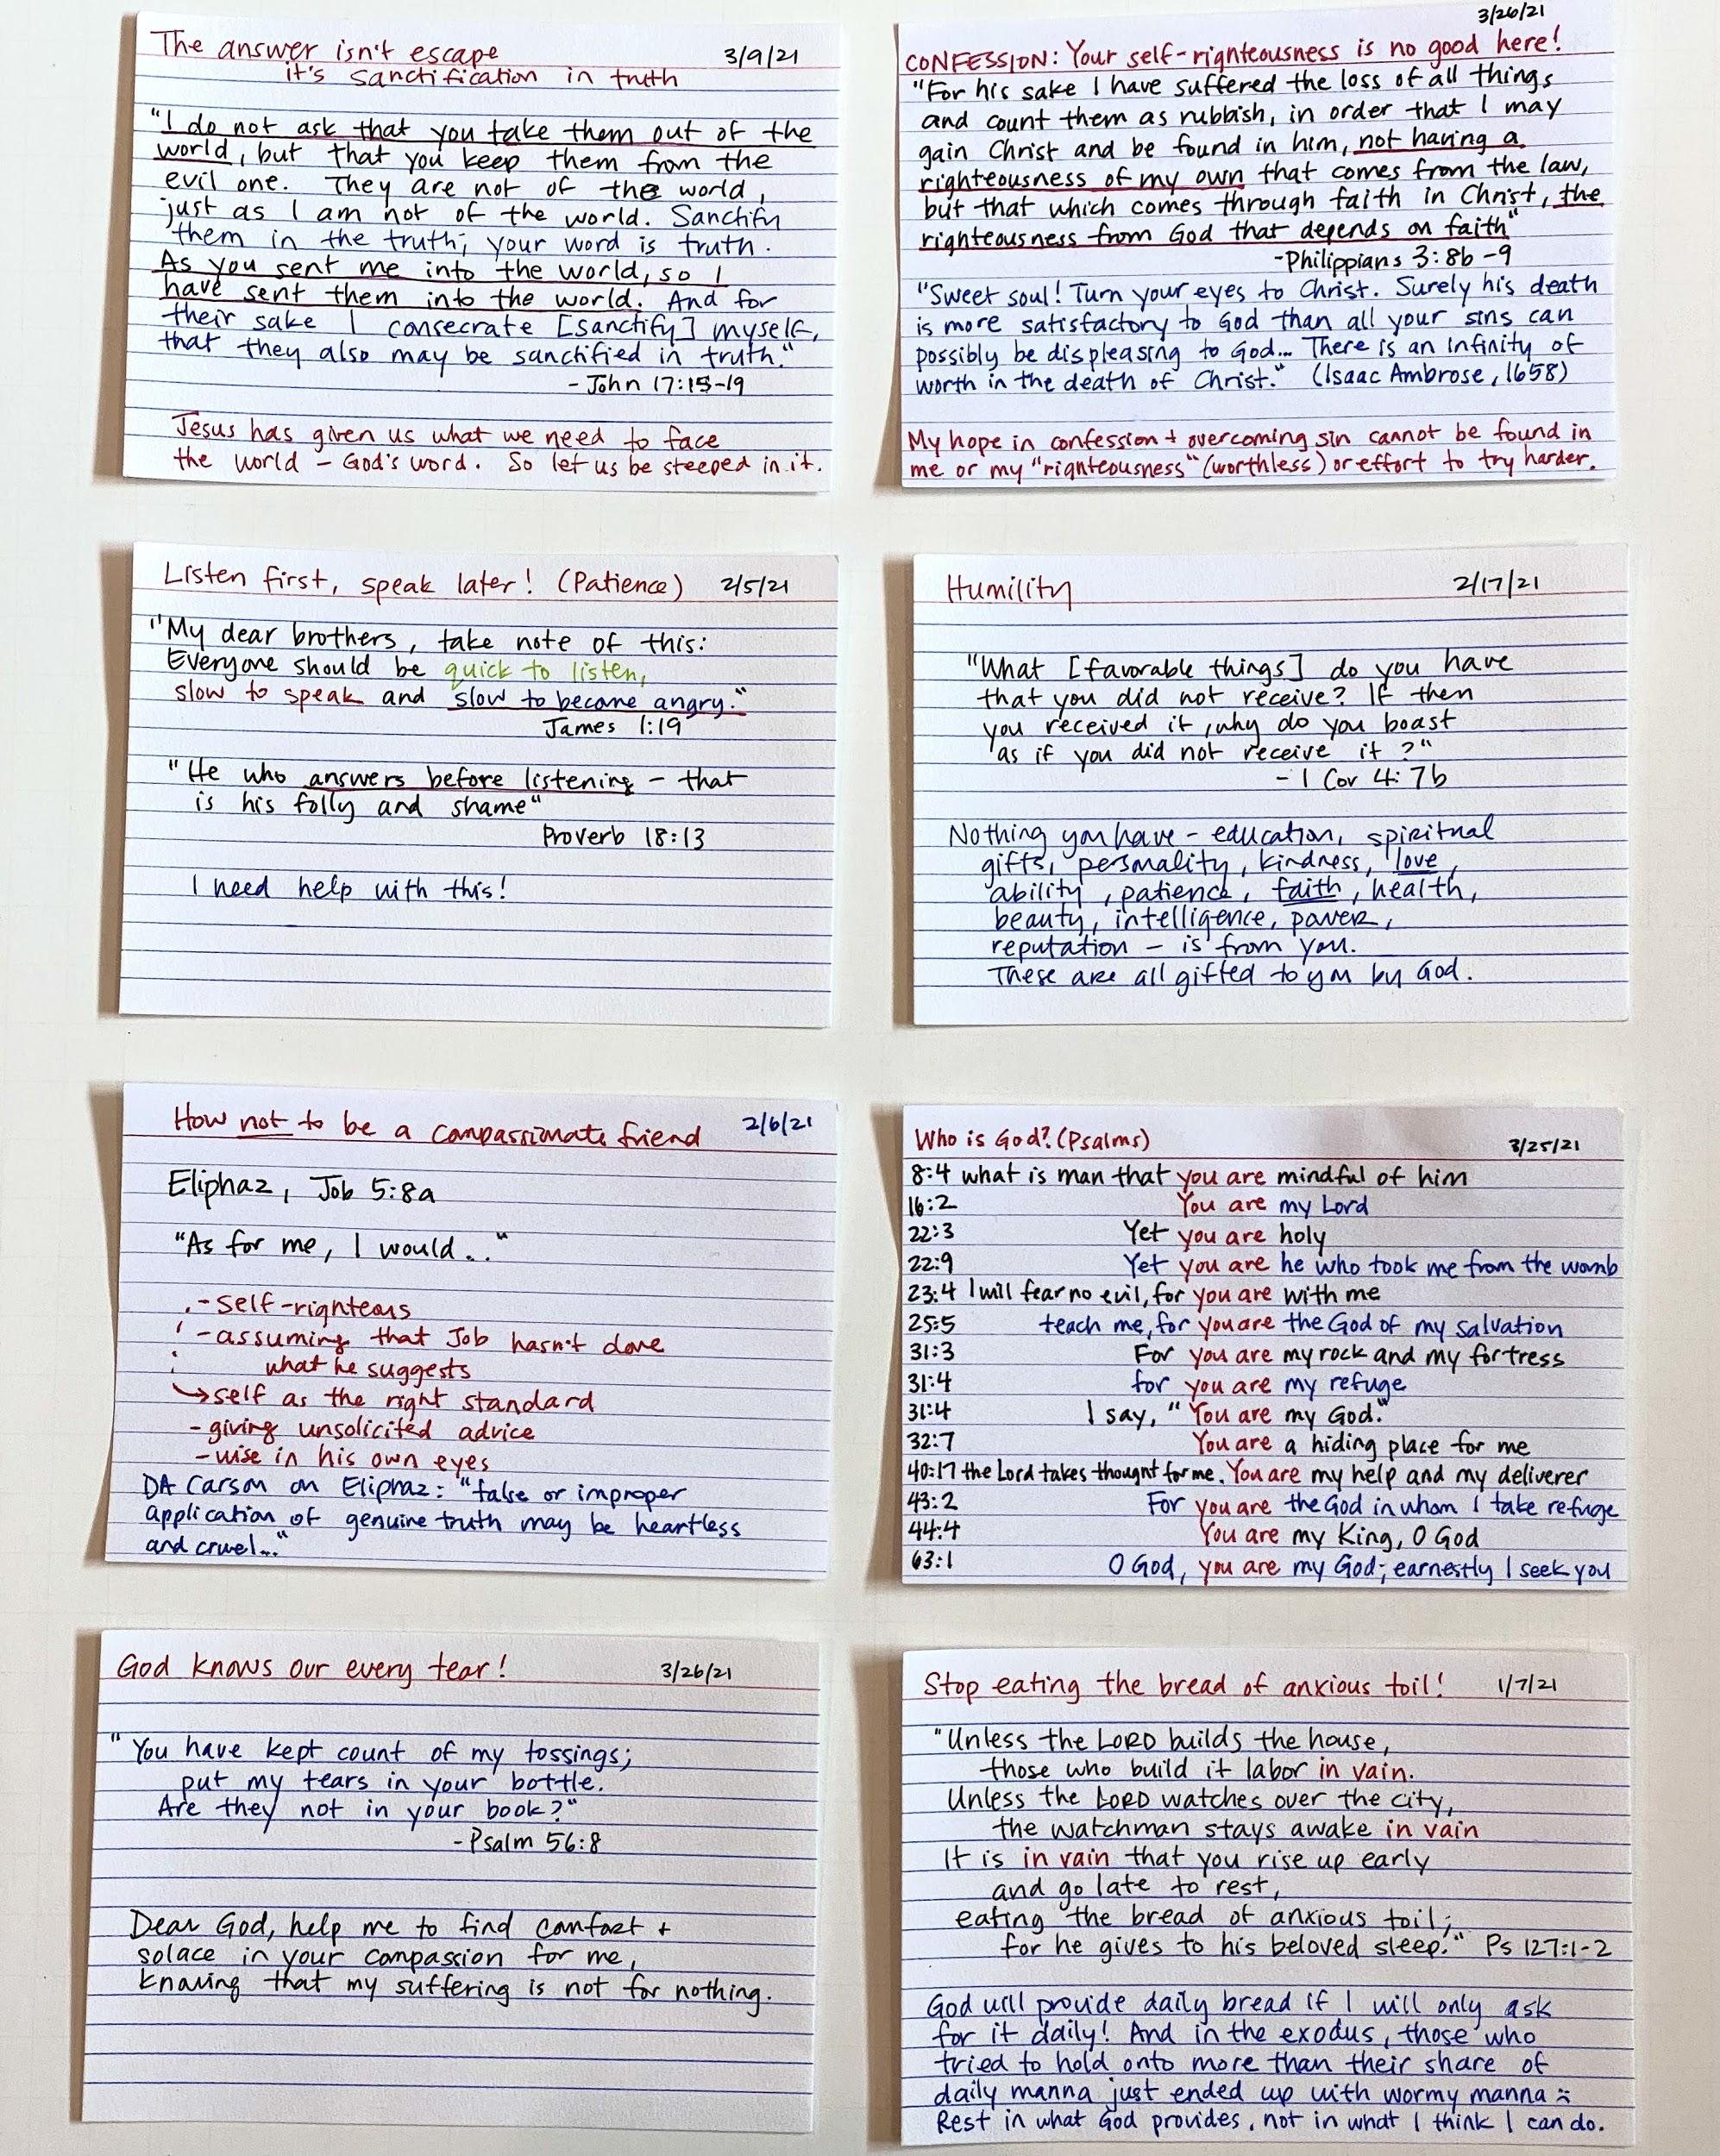 The answer isn't escape 3/9/21
it's sanctification in truth
"I do not ask that you take them out of the
world, but that you keep them from the
evil one. They are not of the world,
just as I am not of the world. Sanctify
them in the truth; your word is truth.
As you sent me into the world, so I
have sent them into the world. And for
their sake I consecrate [sanctify] myself,
that they also may be sanctified in truth."
- John 17:15-19
Jesus has given us what we need to face
the world - God's word. So let us be steeped in it.
3/26/21
CONFESSION: Your self-righteousness is no good here!
"For his sake I have suffered the loss of all things
and count them as rubbish, in order that I may
gain Christ and be found in him, not having a
righteousness of my own that comes from the law,
but that which comes through faith in Christ, the
righteousness from God that depends on faith"
-Philippians 3:8b-9
"Sweet soul! Turn your eyes to Christ. Surely his death
is more satisfactory to God than all your sins can
possibly be displeasing to God... There is an infinity of
worth in the death of Christ." (Isaac Ambrose, 1658)
My hope in confession + overcoming sin cannot be found in
me or my "righteousness" (worthless) or effort to try harder.
Listen first, speak later! (Patience) 2/5/21
"My dear brothers, take note of this:
Everyone should be quick to listen,
slow to speak and slow to become angry."
James 1:19
"He who answers before listening - that
is his folly and shame"
Proverb 18:13
I need help with this!
Humility 2/17/21
"What [favorable things] do you have
that you did not receive? If then
you received it, why do you boast
as if you did not receive it?"
- 1 Cor 4:7b
Nothing you have - education, spiritual
gifts, personality, kindness, love,
ability, patience, faith, health,
beauty, intelligence, power,
reputation - is from you.
These are all gifted to you by God.
How not to be a compassionate friend 2/6/21
Eliphaz, Job 5:8a
"As for me, I would..."
- self-righteous
- assuming that Job hasn't done
what he suggests
→ self as the right standard
- giving unsolicited advice
- wise in his own eyes
DA Carson on Eliphaz: "false or improper
application of genuine truth may be heartless
and cruel..."
Who is God? (Psalms) 3/25/21
8:4 what is man that you are mindful of him
16:2 You are my Lord
22:3 Yet you are holy
22:9 Yet you are he who took me from the womb
23:4 I will fear no evil, for you are with me
25:5 teach me, for you are the God of my salvation
31:3 For you are my rock and my fortress
31:4 for you are my refuge
31:4 I say, "You are my God."
32:7 You are a hiding place for me
40:17 the Lord takes thought for me. You are my help and my deliverer
43:2 For you are the God in whom I take refuge
44:4 You are my King, O God
63:1 O God, you are my God; earnestly I seek you
God knows our every tear! 3/26/21
"You have kept count of my tossings;
put my tears in your bottle.
Are they not in your book?"
-Psalm 56:8
Dear God, help me to find comfort +
solace in your compassion for me,
knowing that my suffering is not for nothing.
Stop eating the bread of anxious toil! 1/7/21
"Unless the LORD builds the house,
those who build it labor in vain.
Unless the LORD watches over the city,
the watchman stays awake in vain
It is in vain that you rise up early
and go late to rest,
eating the bread of anxious toil;
for he gives to his beloved sleep." Ps 127:1-2
God will provide daily bread if I will only ask
for it daily! And in the exodus, those who
tried to hold onto more than their share of
daily manna just ended up with wormy manna :(
Rest in what God provides, not in what I think I can do.